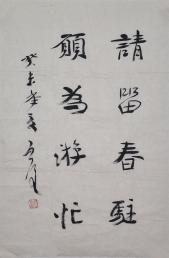 請留春駐
願為游忙
癸未年夏